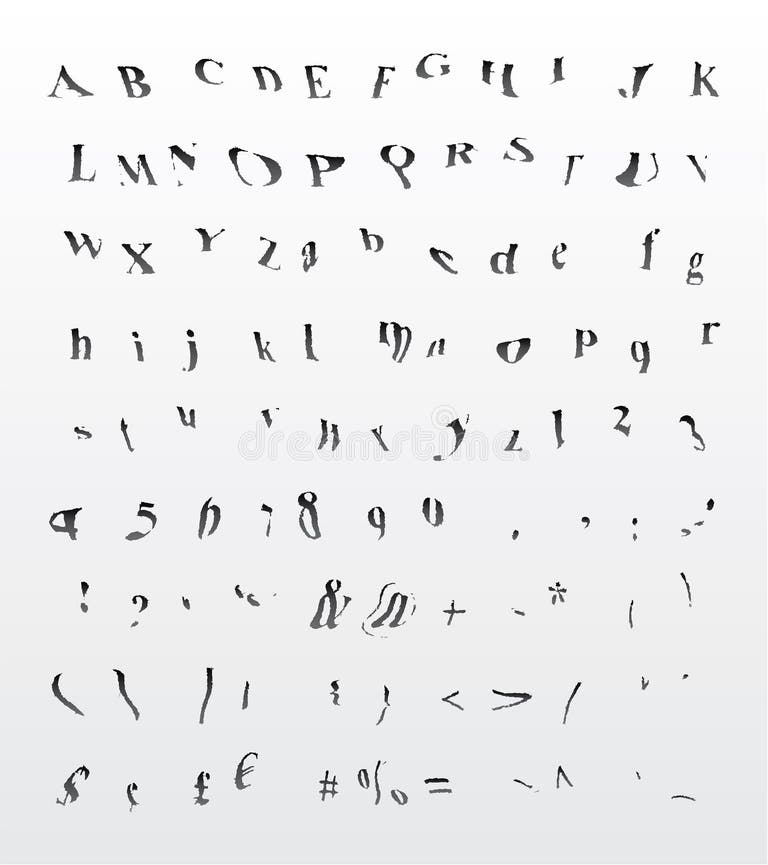 A B C D E F G H I J K
L M N O P Q R S T U V
W X Y Z a b c d e f g
h i j k l m n o p q r
s t u v w x y z 1 2 3
4 5 6 7 8 9 0 . , : ;
! ? ' " & @ + - * ( )
\ \ / | { } < > /
$ ¢ £ € # % = ~ ^ ` _
dreamstime